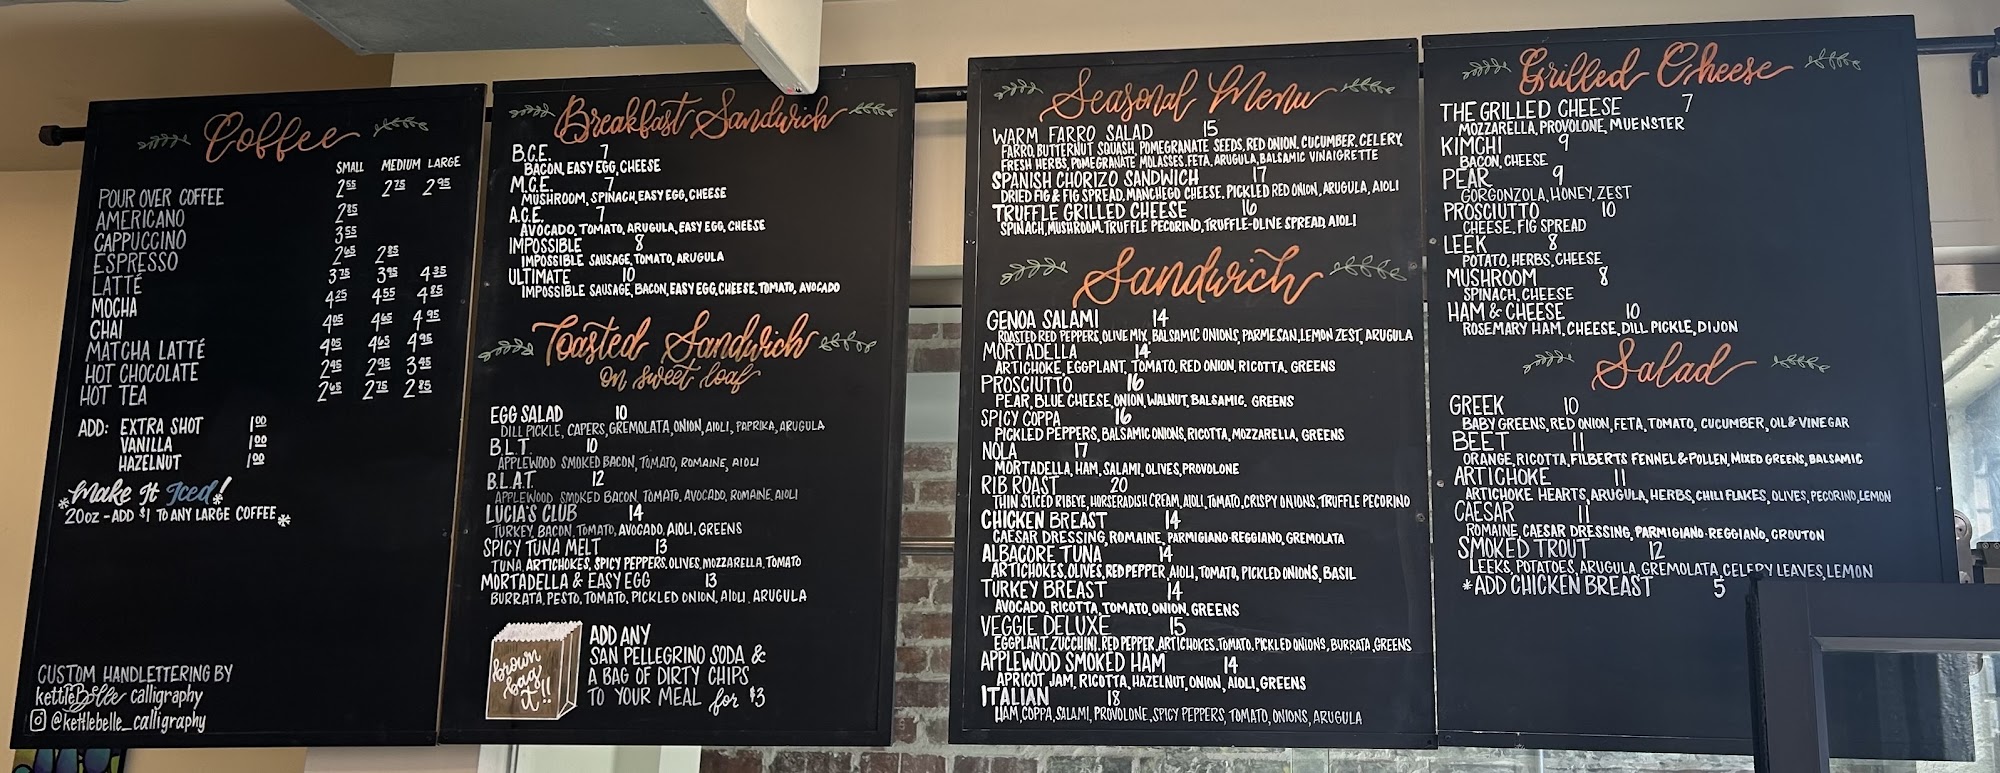 Coffee
SMALL MEDIUM LARGE
POUR OVER COFFEE 2 55 2 75 2 95
AMERICANO 2 85
CAPPUCCINO 3 55
ESPRESSO 2 65 2 85
LATTÉ 3 75 3 95 4 35
MOCHA 4 25 4 55 4 85
CHAI 4 05 4 65 4 95
MATCHA LATTÉ 4 05 4 65 4 95
HOT CHOCOLATE 2 45 2 95 3 45
HOT TEA 2 65 2 75 2 85
ADD: EXTRA SHOT 1 00
VANILLA 1 00
HAZELNUT 1 00
*Make It Iced!
20oz - ADD $1 TO ANY LARGE COFFEE*
CUSTOM HANDLETTERING BY
kettleBelle calligraphy
@kettlebelle_calligraphy
Breakfast Sandwich
B.C.E. 7
BACON, EASY EGG, CHEESE
M.C.E. 7
MUSHROOM, SPINACH, EASY EGG, CHEESE
A.C.E. 7
AVOCADO, TOMATO, ARUGULA, EASY EGG, CHEESE
IMPOSSIBLE 8
IMPOSSIBLE SAUSAGE, TOMATO, ARUGULA
ULTIMATE 10
IMPOSSIBLE SAUSAGE, BACON, EASY EGG, CHEESE, TOMATO, AVOCADO
Toasted Sandwich
on sweet loaf
EGG SALAD 10
DILL PICKLE, CAPERS, GREMOLATA, ONION, AIOLI, PAPRIKA, ARUGULA
B.L.T. 10
APPLEWOOD SMOKED BACON, TOMATO, ROMAINE, AIOLI
B.L.A.T. 12
APPLEWOOD SMOKED BACON, TOMATO, AVOCADO, ROMAINE, AIOLI
LUCIA'S CLUB 14
TURKEY, BACON, TOMATO, AVOCADO, AIOLI, GREENS
SPICY TUNA MELT 13
TUNA, ARTICHOKES, SPICY PEPPERS, OLIVES, MOZZARELLA, TOMATO
MORTADELLA & EASY EGG 13
BURRATA, PESTO, TOMATO, PICKLED ONION, AIOLI, ARUGULA
brown
bag
it!!
ADD ANY
SAN PELLEGRINO SODA &
A BAG OF DIRTY CHIPS
TO YOUR MEAL for $3
Seasonal Menu
WARM FARRO SALAD 15
FARRO, BUTTERNUT SQUASH, POMEGRANATE SEEDS, RED ONION, CUCUMBER, CELERY,
FRESH HERBS, POMEGRANATE MOLASSES, FETA, ARUGULA, BALSAMIC VINAIGRETTE
SPANISH CHORIZO SANDWICH 17
DRIED FIG & FIG SPREAD, MANCHEGO CHEESE, PICKLED RED ONION, ARUGULA, AIOLI
TRUFFLE GRILLED CHEESE 16
SPINACH, MUSHROOM, TRUFFLE PECORINO, TRUFFLE-OLIVE SPREAD, AIOLI
Sandwich
GENOA SALAMI 14
ROASTED RED PEPPERS, OLIVE MIX, BALSAMIC ONIONS, PARMESAN, LEMON ZEST, ARUGULA
MORTADELLA 14
ARTICHOKE, EGGPLANT, TOMATO, RED ONION, RICOTTA, GREENS
PROSCIUTTO 16
PEAR, BLUE CHEESE, ONION, WALNUT, BALSAMIC, GREENS
SPICY COPPA 16
PICKLED PEPPERS, BALSAMIC ONIONS, RICOTTA, MOZZARELLA, GREENS
NOLA 17
MORTADELLA, HAM, SALAMI, OLIVES, PROVOLONE
RIB ROAST 20
THIN SLICED RIBEYE, HORSERADISH CREAM, AIOLI, TOMATO, CRISPY ONIONS, TRUFFLE PECORINO
CHICKEN BREAST 14
CAESAR DRESSING, ROMAINE, PARMIGIANO-REGGIANO, GREMOLATA
ALBACORE TUNA 14
ARTICHOKES, OLIVES, RED PEPPER, AIOLI, TOMATO, PICKLED ONIONS, BASIL
TURKEY BREAST 14
AVOCADO, RICOTTA, TOMATO, ONION, GREENS
VEGGIE DELUXE 15
EGGPLANT, ZUCCHINI, RED PEPPER, ARTICHOKES, TOMATO, PICKLED ONIONS, BURRATA, GREENS
APPLEWOOD SMOKED HAM 14
APRICOT JAM, RICOTTA, HAZELNUT, ONION, AIOLI, GREENS
ITALIAN 18
HAM, COPPA, SALAMI, PROVOLONE, SPICY PEPPERS, TOMATO, ONIONS, ARUGULA
Grilled Cheese
THE GRILLED CHEESE 7
MOZZARELLA, PROVOLONE, MUENSTER
KIMCHI 9
BACON, CHEESE
PEAR 9
GORGONZOLA, HONEY, ZEST
PROSCIUTTO 10
CHEESE, FIG SPREAD
LEEK 8
POTATO, HERBS, CHEESE
MUSHROOM 8
SPINACH, CHEESE
HAM & CHEESE 10
ROSEMARY HAM, CHEESE, DILL PICKLE, DIJON
Salad
GREEK 10
BABY GREENS, RED ONION, FETA, TOMATO, CUCUMBER, OIL & VINEGAR
BEET 11
ORANGE, RICOTTA, FILBERTS FENNEL & POLLEN, MIXED GREENS, BALSAMIC
ARTICHOKE 11
ARTICHOKE HEARTS, ARUGULA, HERBS, CHILI FLAKES, OLIVES, PECORINO, LEMON
CAESAR 11
ROMAINE, CAESAR DRESSING, PARMIGIANO-REGGIANO, CROUTON
SMOKED TROUT 12
LEEKS, POTATOES, ARUGULA, GREMOLATA, CELERY LEAVES, LEMON
*ADD CHICKEN BREAST 5